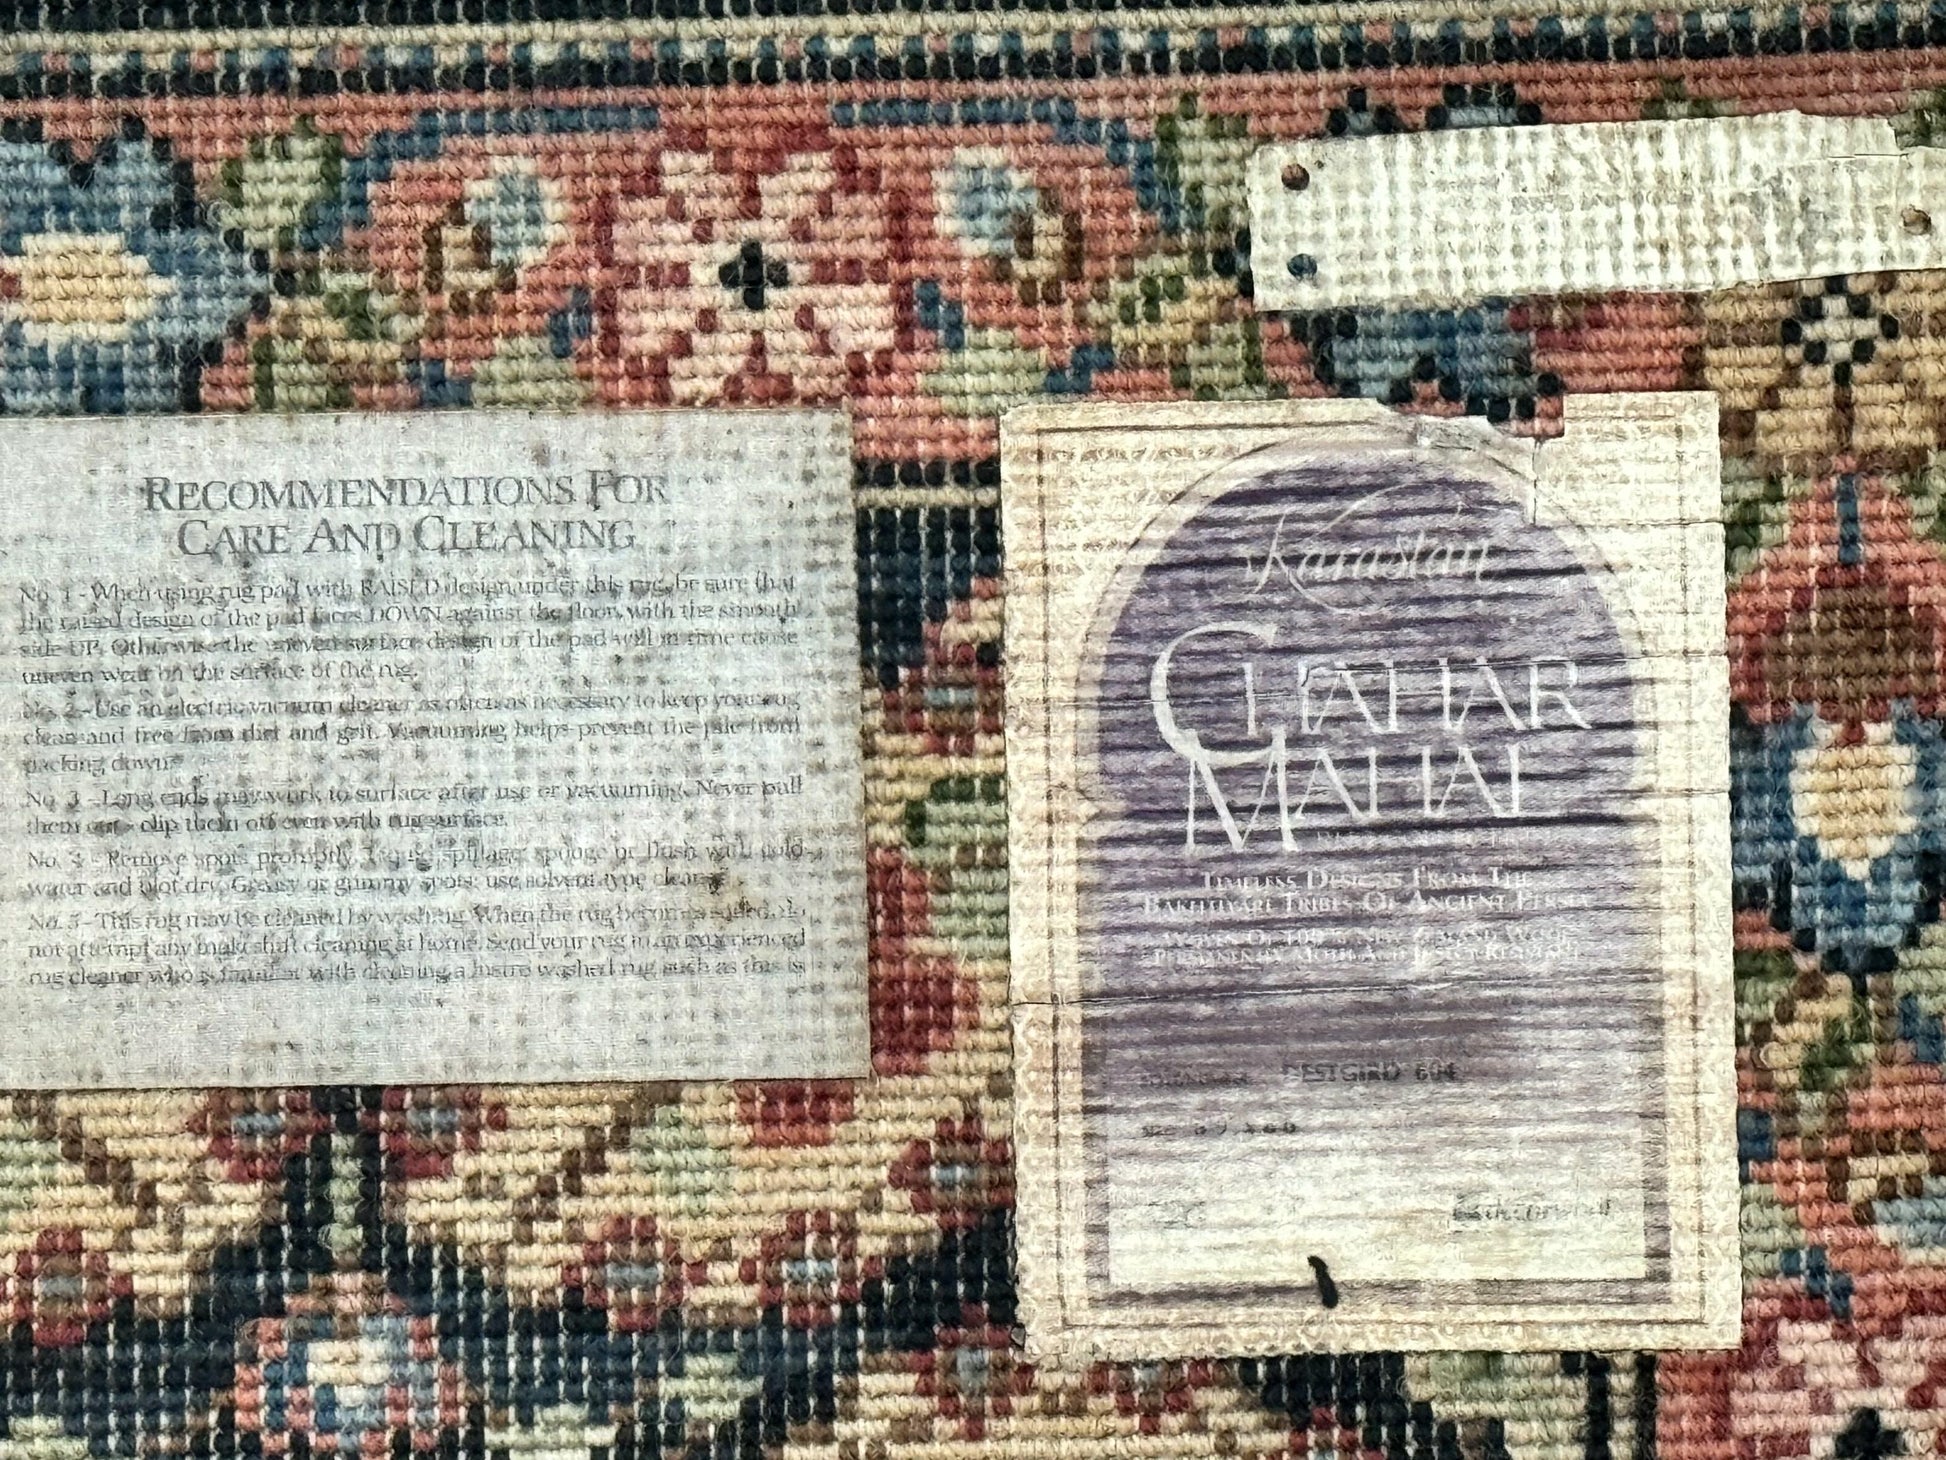 RECOMMENDATIONS FOR
CARE AND CLEANING
No. 1 - When using rug pad with RAISED design under this rug, be sure that
the raised design of the pad faces DOWN against the floor, with the smooth
side UP. Otherwise the uneven surface design of the pad will in time cause
uneven wear on the surface of the rug.
No. 2 - Use an electric vacuum cleaner as often as necessary to keep your rug
clean and free from dirt and grit. Vacuuming helps prevent the pile from
packing down.
No. 3 - Long ends may work to surface after use or vacuuming. Never pull
them out - clip them off even with rug surface.
No. 4 - Remove spots promptly. Liquid spillage: sponge or with cold
water and blot dry. Greasy or gummy spots: use solvent type cleaner.
No. 5 - This rug may be cleaned by washing. When the rug becomes soiled, do
not attempt any makeshift cleaning at home. Send your rug to an experienced
rug cleaner who is familiar with cleaning a lustre washed rug such as this is
Karastan
CHAHAR
MAHAL
TIMELESS DESIGNS FROM THE
BAKHTIYARI TRIBES OF ANCIENT PERSIA
WOVEN OF 100% NEW ZEALAND WOOL
PERMANENTLY MOTH AND INSECT RESISTANT